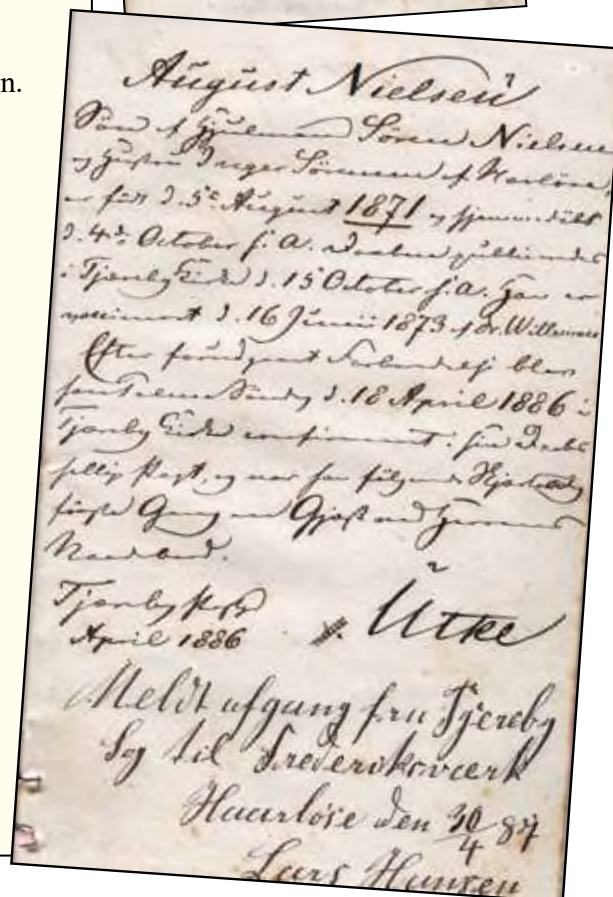 n.
August Nielsen
Søn af Hjulmand Søren Nielsen
og Hustru Inger Sørensen af Haarløse,
er født d. 5te August 1871 og hjemmedøbt
d. 4de October s. A. Daaben publiceredes
i Tjæreby Kirke d. 15 October s. A. Han er
vaccineret d. 16 Junii 1873 af Dr. Willemoes
Efter foregaaet Forberedelse blev
han Palme Søndag d. 18 April 1886 i
Tjæreby Kirke confirmeret i sin Daabs
hellige Pagt, og var han følgende
første Gang en Gjæst ved Herrens
Nadverbord.
Tjæreby
April 1886 Utke
Meldt afgang fra Tjereby
Sg til Frederiksværk
Haarløse den 30/4 87
Lars Hansen